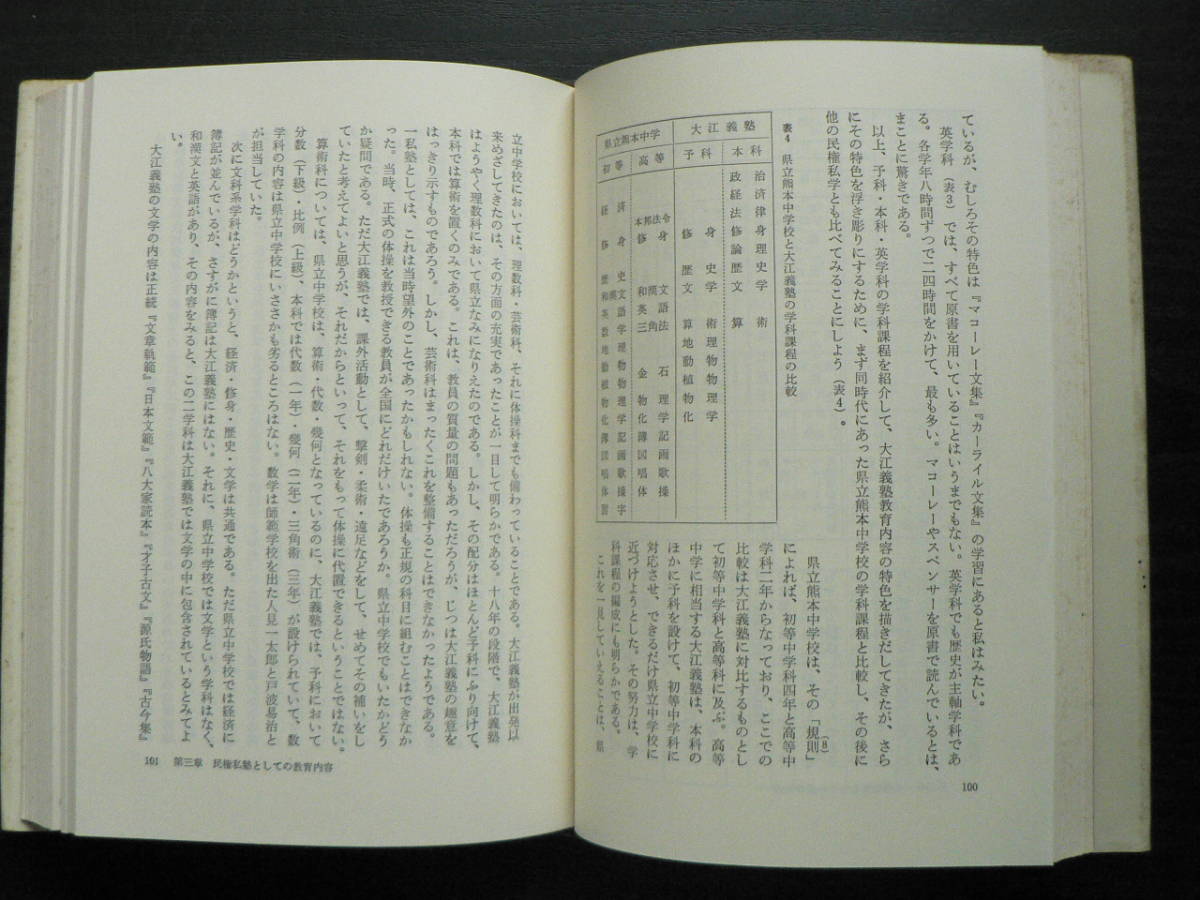 ているが、むしろその特色は『マコーレー文集』『カーライル文集』の学習にあると私はみたい。
英学科（表3）では、すべて原書を用いていることはいうまでもない。英学科でも歴史が主軸学科であ
る。各学年八時間ずつで二四時間をかけて、最も多い。マコーレーやスペンサーを原書で読んでいるとは、
まことに驚きである。
以上、予科・本科・英学科の学科課程を紹介して、大江義塾教育内容の特色を描きだしてきたが、さら
にその特色を浮き彫りにするために、まず同時代にあった県立熊本中学校の学科課程と比較し、その後に
他の民権私学とも比べてみることにしよう（表4）。
表4　県立熊本中学校と大江義塾の学科課程の比較
大江義塾
本科
政治
経済
法律
修身
論理
歴史
文学
算術
予科
修身
歴史
文学
算術
地理
動物
植物
物理
化学
県立熊本中学
高等
本邦法令
修身
和漢文
英語
三角法
金石
物理
化学
簿記
図画
唱歌
体操
初等
経済
修身
歴史
和漢文
英語
数学
地理
動物
植物
物理
化学
簿記
図画
唱歌
体操
習字
県立熊本中学校は、その「規則」(8)
によれば、初等中学科四年と高等中
学科二年からなっており、ここでの
比較は大江義塾に対比するものとし
て初等中学科と高等科に及ぶ。初等
中学に相当する大江義塾は、本科の
ほかに予科を設けて、初等中学科に
対応させ、できるだけ県立中学校に
近づけようとした。その努力は、学
科課程の編成にも明らかである。
これを一見していえることは、県
100
立中学校においては、理数科・芸術科、それに体操科までも備わっていることである。大江義塾が出発以
来めざしてきたのは、その方面の充実であったことが一目して明らかである。十八年の段階で、大江義塾
はようやく理数科において県立なみになりえたのである。しかし、その配分はほとんど予科にふり向けて、
本科では算術を置くのみである。これは、教員の質量の問題もあっただろうが、じつは大江義塾の趣意を
はっきり示すものであろう。しかし、芸術科はまったくこれを整備することはできなかったようである。
一私塾としては、これは当時望外のことであったかもしれない。体操も正規の科目に組むことはできなか
った。当時、正式の体操を教授できる教員が全国にどれだけいたであろうか。県立中学校でもいたかどう
か疑問である。ただ大江義塾では、課外活動として、撃剣・柔術・遠足などをして、せめてその補いをし
ていたと考えてよいと思うが、それだからといって、それをもって体操に代置できるということではない。
算術科については、県立中学校は、算術・代数・幾何となっているのに、大江義塾では、予科において
分数（下級）・比例（上級）、本科では代数（一年）・幾何（二年）・三角術（三年）が設けられていて、数
学科の内容は県立中学校にいささかも劣るところはない。数学は師範学校を出た人見一太郎と戸波易治と
が担当していた。
次に文科系学科はどうかというと、経済・修身・歴史・文学は共通である。ただ県立中学校では経済に
簿記が並んでいるが、さすがに簿記は大江義塾にはない。それに、県立中学校では文学という学科はなく、
和漢文と英語があり、その内容をみると、この二学科は大江義塾では文学の中に包含されているとみてよ
い。
大江義塾の文学の内容は正統『文章軌範』『日本文範』『八大家読本』『才子古文』『源氏物語』『古今集』
101　第三章　民権私塾としての教育内容